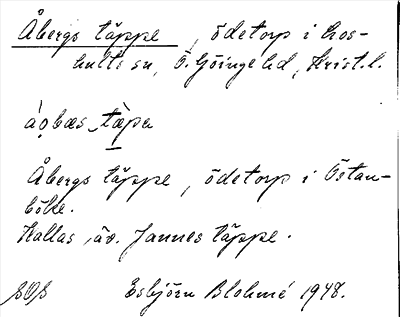 Åbergs täppe, ödetorp i Los-
hults sn, Ö. Göinge hd, Krist. l.
Åbergs täppe, ödetorp i Östan-
böke.
Kallas äv. Jannes täppe.
SOS Esbjörn Blohmé 1948.